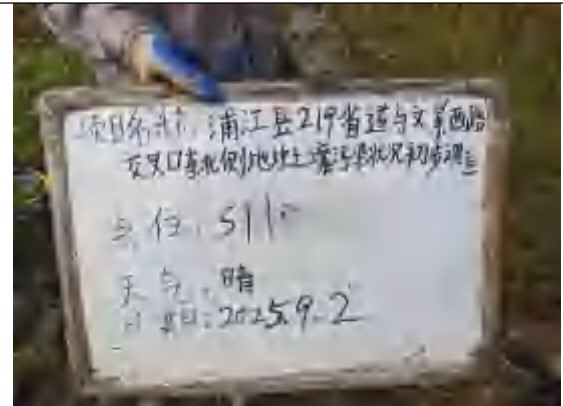 项目名称:浦江县219省道与文景西路
交叉口东北侧地块土壤污染状况初步调查
点位:S11
天气:晴
日期:2025.9.2